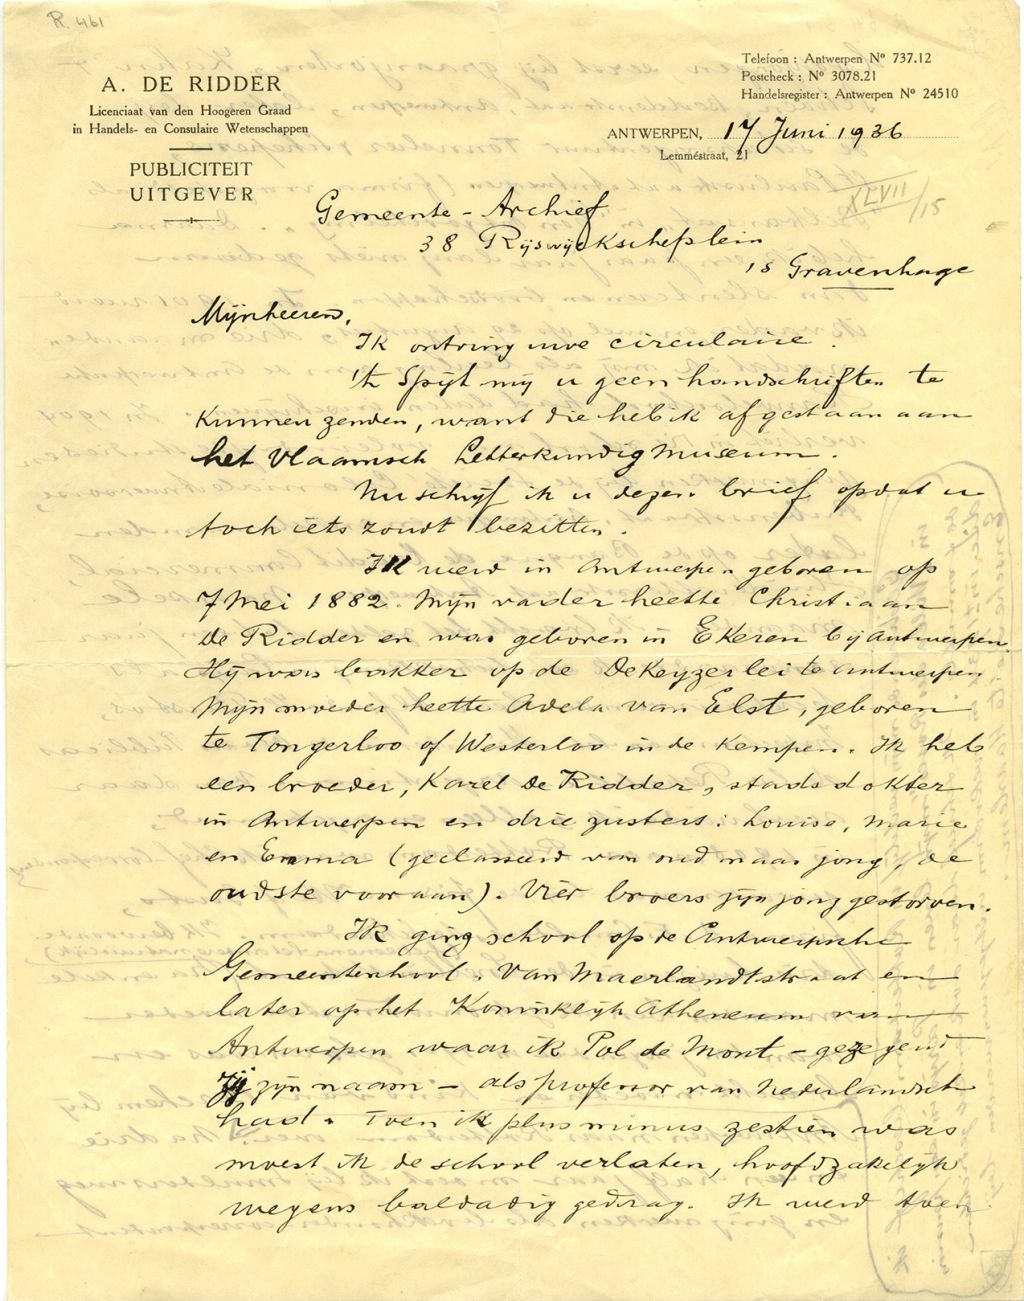 R. 461
A. DE RIDDER
Licenciaat van den Hoogeren Graad
in Handels- en Consulaire Wetenschappen
PUBLICITEIT
UITGEVER
Telefoon : Antwerpen Nº 737.12
Postcheck : Nº 3078.21
Handelsregister : Antwerpen Nº 24510
ANTWERPEN, 17 Juni 1936
Lemméstraat, 21
XLVII/15
Gemeente - Archief
38 Rijswijckscheplein
's Gravenhage
Mijnheeren,
Ik ontving uwe circulaire.
't Spijt mij u geen handschriften te
kunnen zenden, want die heb ik afgestaan aan
het Vlaamsch Letterkundig Museum.
Nu schrijf ik u dezen brief opdat u
toch iets zoudt bezitten.
Ik werd in Antwerpen geboren op
7 Mei 1882. Mijn vader heette Christiaan
De Ridder en was geboren in Ekeren bij Antwerpen.
Hij was bakker op de De Keyzerlei te Antwerpen.
Mijn moeder heette Adela van Elst, geboren
te Tongerloo of Westerloo in de Kempen. Ik heb
een broeder, Karel De Ridder, stadsdokter
in Antwerpen en drie zusters: Louise, Marie
en Emma (geclasseerd van oud naar jong, de
oudste vooraan). Vier broers zijn jong gestorven.
Ik ging school op de Antwerpsche
Gemeenteschool, Van Maerlandtstraat en
later op het Koninklijk Atheneum van
Antwerpen waar ik Pol de Mont - gezegend
zij zijn naam - als professor van Nederlandsch
had. Toen ik plus minus zestien was
moest ik de school verlaten, hoofdzakelijk
wegens baldadig gedrag. Ik werd toen